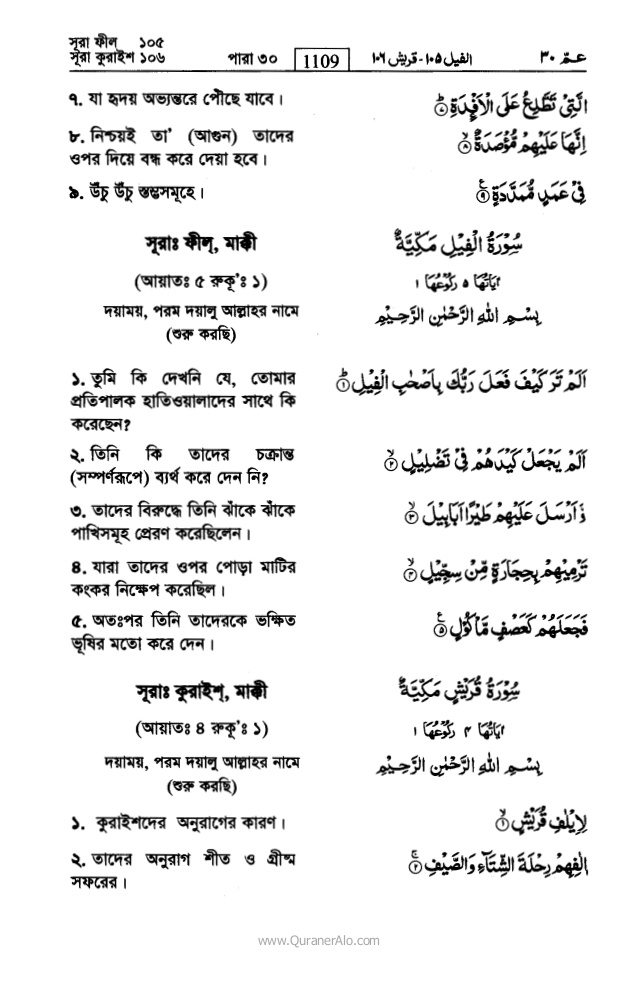 সূরা ফীল ১০৫
সূরা কুরাইশ ১০৬
পারা ৩০
1109
الفيل ١٠٥ - قريش ١٠٦
عـمّ ٣٠
৭. যা হৃদয় অভ্যন্তরে পৌঁছে যাবে।
الَّتِىْ تَطَّلِعُ عَلَى الْاَفْـِٕدَةِ ۝٧
৮. নিশ্চয়ই তা' (আগুন) তাদের
ওপর দিয়ে বন্ধ করে দেয়া হবে।
اِنَّهَا عَلَيْهِمْ مُّؤْصَدَةٌ ۝٨
৯. উঁচু উঁচু স্তম্ভসমূহে।
فِىْ عَمَدٍ مُّمَدَّدَةٍ ۝٩
সূরাঃ ফীল্, মাক্কী
سُوْرَةُ الْفِيْلِ مَكِّيَّةٌ
(আয়াতঃ ৫ রুকূ'ঃ ১)
اٰيَاتُهَا ٥ رُكُوْعُهَا ١
দয়াময়, পরম দয়ালু আল্লাহর নামে
(শুরু করছি)
بِسْمِ اللهِ الرَّحْمٰنِ الرَّحِيْمِ
১. তুমি কি দেখনি যে, তোমার
প্রতিপালক হাতিওয়ালাদের সাথে কি
করেছেন?
اَلَمْ تَرَ كَيْفَ فَعَلَ رَبُّكَ بِاَصْحٰبِ الْفِيْلِ ۝١
২. তিনি কি তাদের চক্রান্ত
(সম্পর্ণরূপে) ব্যর্থ করে দেন নি?
اَلَمْ يَجْعَلْ كَيْدَهُمْ فِىْ تَضْلِيْلٍ ۝٢
৩. তাদের বিরুদ্ধে তিনি ঝাঁকে ঝাঁকে
পাখিসমূহ প্রেরণ করেছিলেন।
وَّ اَرْسَلَ عَلَيْهِمْ طَيْرًا اَبَابِيْلَ ۝٣
৪. যারা তাদের ওপর পোড়া মাটির
কংকর নিক্ষেপ করেছিল।
تَرْمِيْهِمْ بِحِجَارَةٍ مِّنْ سِجِّيْلٍ ۝٤
৫. অতঃপর তিনি তাদেরকে ভক্ষিত
ভূষির মতো করে দেন।
فَجَعَلَهُمْ كَعَصْفٍ مَّاْكُوْلٍ ۝٥
সূরাঃ কুরাইশ্, মাক্কী
سُوْرَةُ قُرَيْشٍ مَكِّيَّةٌ
(আয়াতঃ ৪ রুকূ'ঃ ১)
اٰيَاتُهَا ٤ رُكُوْعُهَا ١
দয়াময়, পরম দয়ালু আল্লাহর নামে
(শুরু করছি)
بِسْمِ اللهِ الرَّحْمٰنِ الرَّحِيْمِ
১. কুরাইশদের অনুরাগের কারণ।
لِاِيْلٰفِ قُرَيْشٍ ۝١
২. তাদের অনুরাগ শীত ও গ্রীষ্ম
সফরের।
اٖلٰفِهِمْ رِحْلَةَ الشِّتَآءِ وَالصَّيْفِ ۝٢
www.QuranerAlo.com